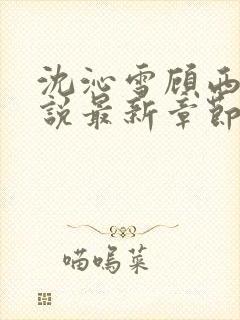 沈沁雪顾西
說最新章節
喵嗚菜